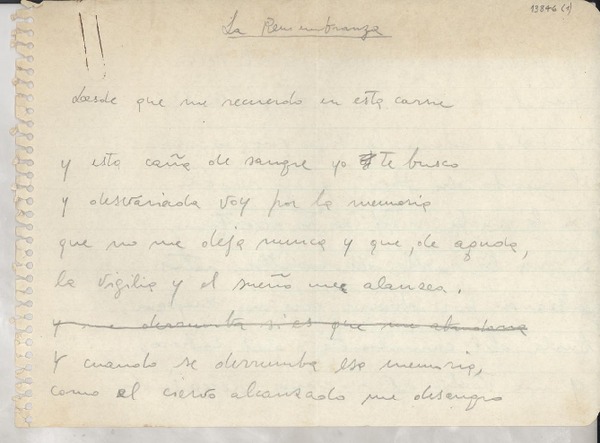 13846 (1)
La Remembranza
desde que me recuerdo en esta carne
y esta caña de sangre yo te busco
y desvariada voy por la memoria
que no me deja nunca y que, de aguda,
la vigilia y el sueño me alancea.
y me derrumba si es que me abandona
Y cuando se derrumba esa memoria,
como el ciervo alcanzado me desangro